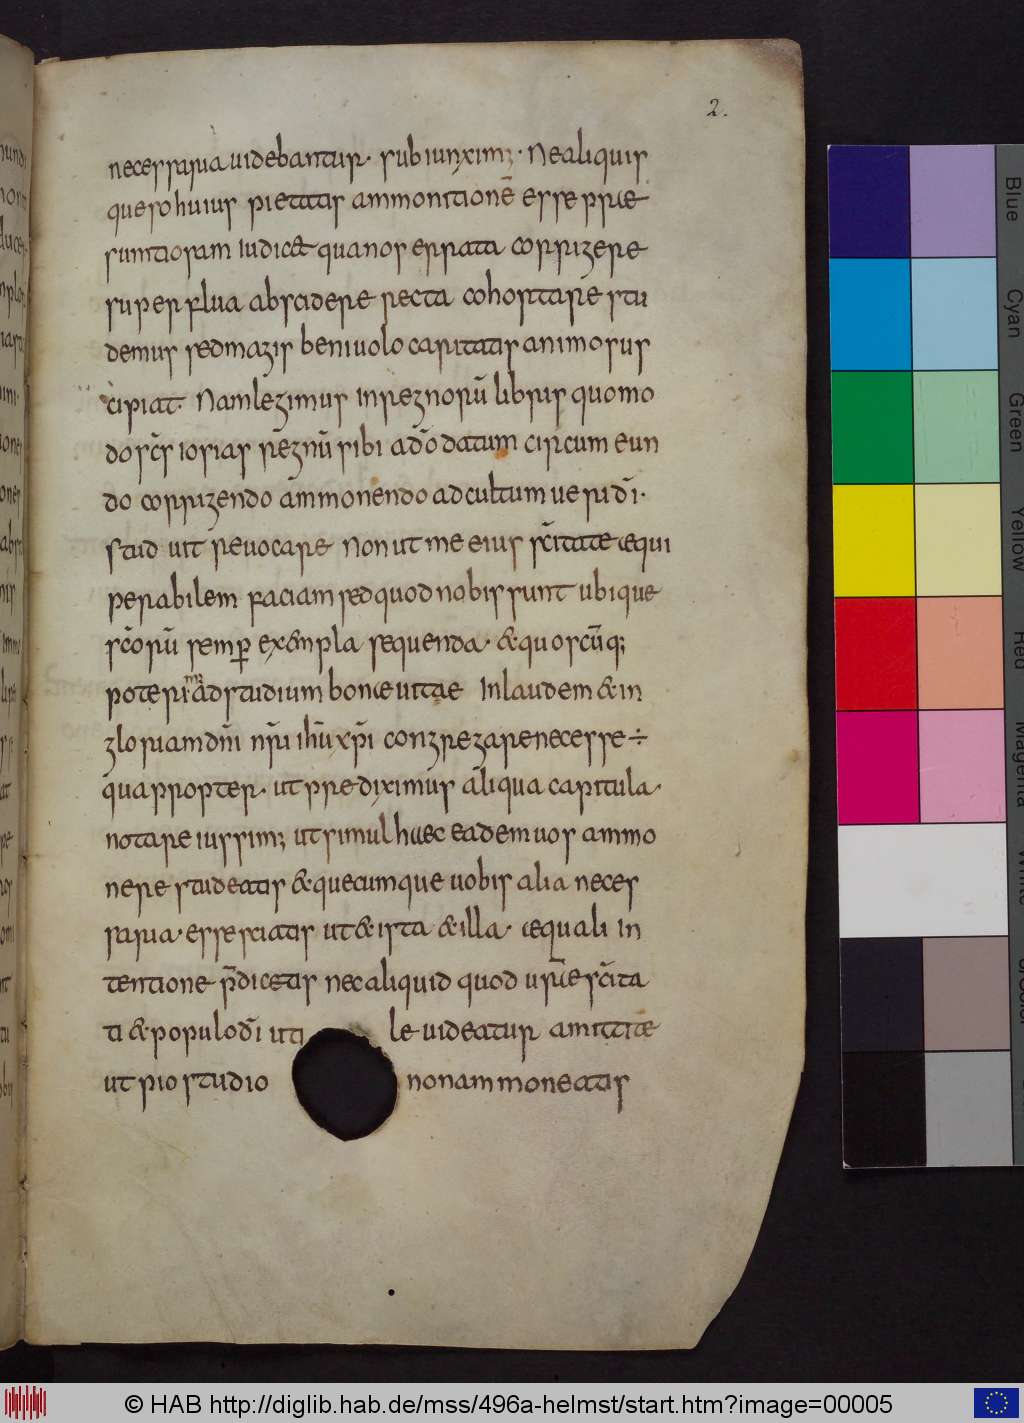 2.
necessaria uidebantur. subiunximꝰ. Nealiquis
queso huius pietatis ammonitionē esse præ
sumtiosam iudicet quanos errata corrigere
superflua abscidere recta cohortare stu
demus sed magis beniuolo caritatis animo sus
cipiat. Nam legimus inregnorū libris quomo
do sc̄s iosias regnū sibi ad̄o datum circumeun
do corrigendo ammonendo ad cultum ueri dī.
stud uit reuocare Non ut me eius sc̄itate æqui
perabilem faciam sed quod nobis sunt ubique
sc̄orū semp̄ exempla sequenda. & quoscūq;
poterimꝰ adstudium bonæ uitae Inlaudem & in
gloriam dn̄i nr̄i ihū xp̄i congregare necesse ÷
quapropter. ut prediximus aliqua capitula.
notare iussimꝰ ut simul hæc eadem uos ammo
nere studeatis & quecumque uobis alia neces
saria. esse sciatis ut & ista & illa. æquali in
tentione p̄dicetis nec aliquid quod ur̄æ sc̄ita
ti & populo dī uti le uideatur amittitæ
ut pio studio non ammoneatis
Blue
Cyan
Green
Yellow
Red
Magenta
White
© HAB http://diglib.hab.de/mss/496a-helmst/start.htm?image=00005